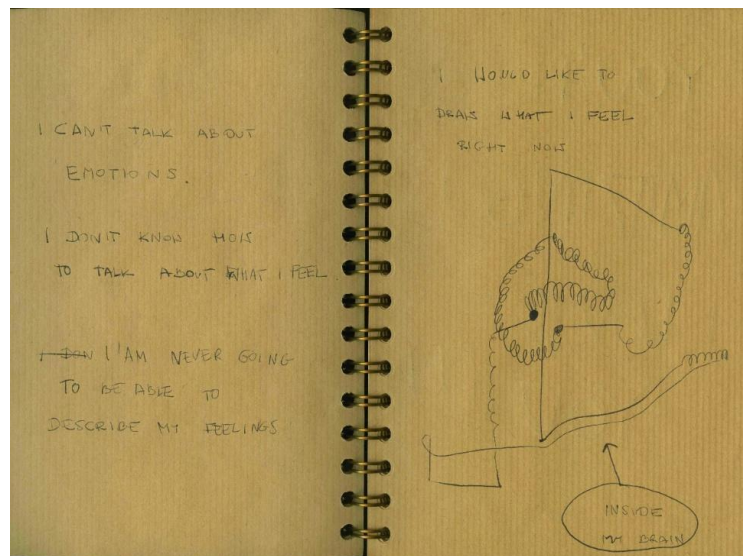 I CAN'T TALK ABOUT
EMOTIONS.
I DON'T KNOW HOW
TO TALK ABOUT WHAT I FEEL
I DON I'AM NEVER GOING
TO BE ABLE TO
DESCRIBE MY FEELINGS
I WOULD LIKE TO
DRAW WHAT I FEEL
RIGHT NOW
INSIDE
MY BRAIN